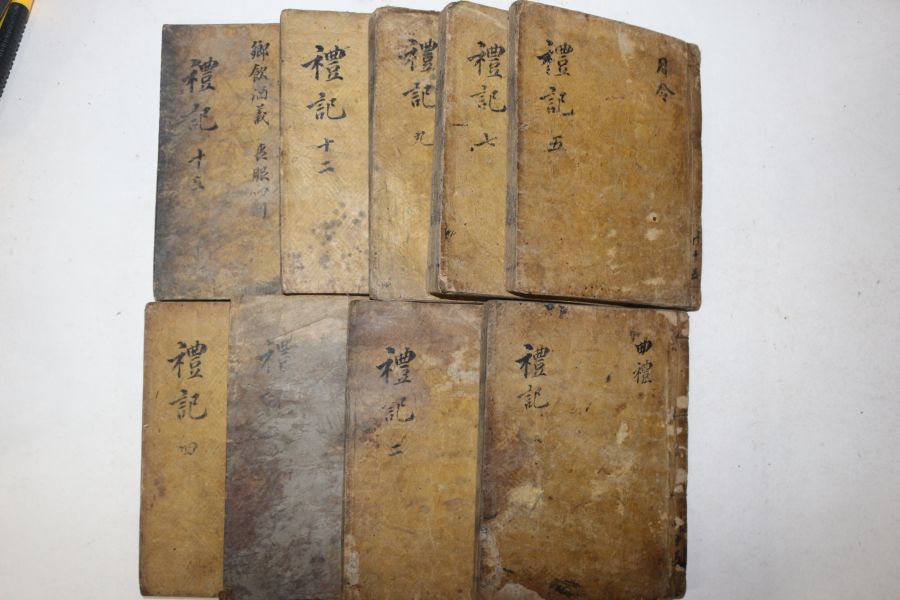 禮記 五
月令
禮記 七
禮記 九
禮記 十二
禮記 十五
鄉飲酒義 喪服四制
曲禮
禮記
禮記 二
禮
禮記 四